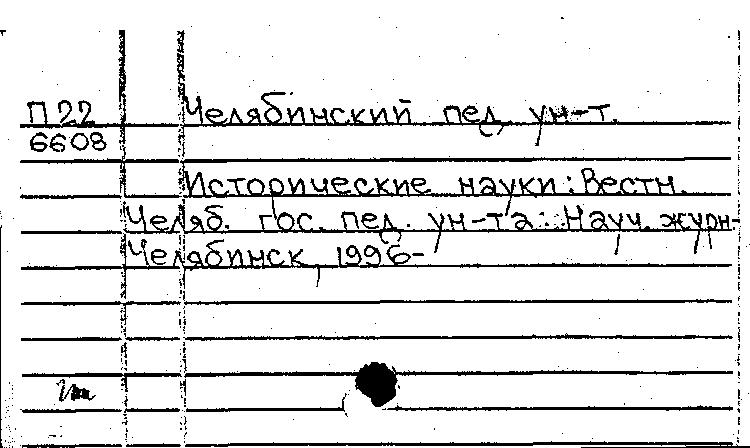 П22 Челябинский пед. ун-т.
6608
Исторические науки: Вестн.
Челяб. гос. пед. ун-та: Науч. журн.-
Челябинск, 1996-